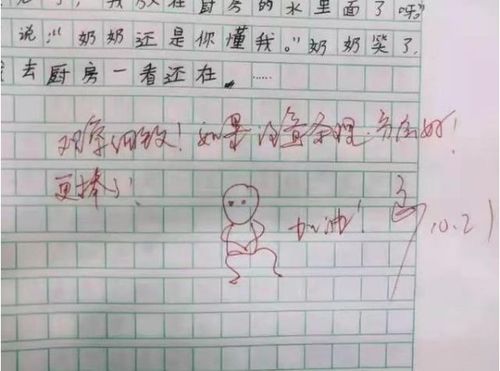 我放在厨房的水里面了呀。"
说："奶奶还是你懂我。"奶奶笑了,
去厨房一看还在。……
观察细致！如果注意条理，
更棒了！
加油！
10.21